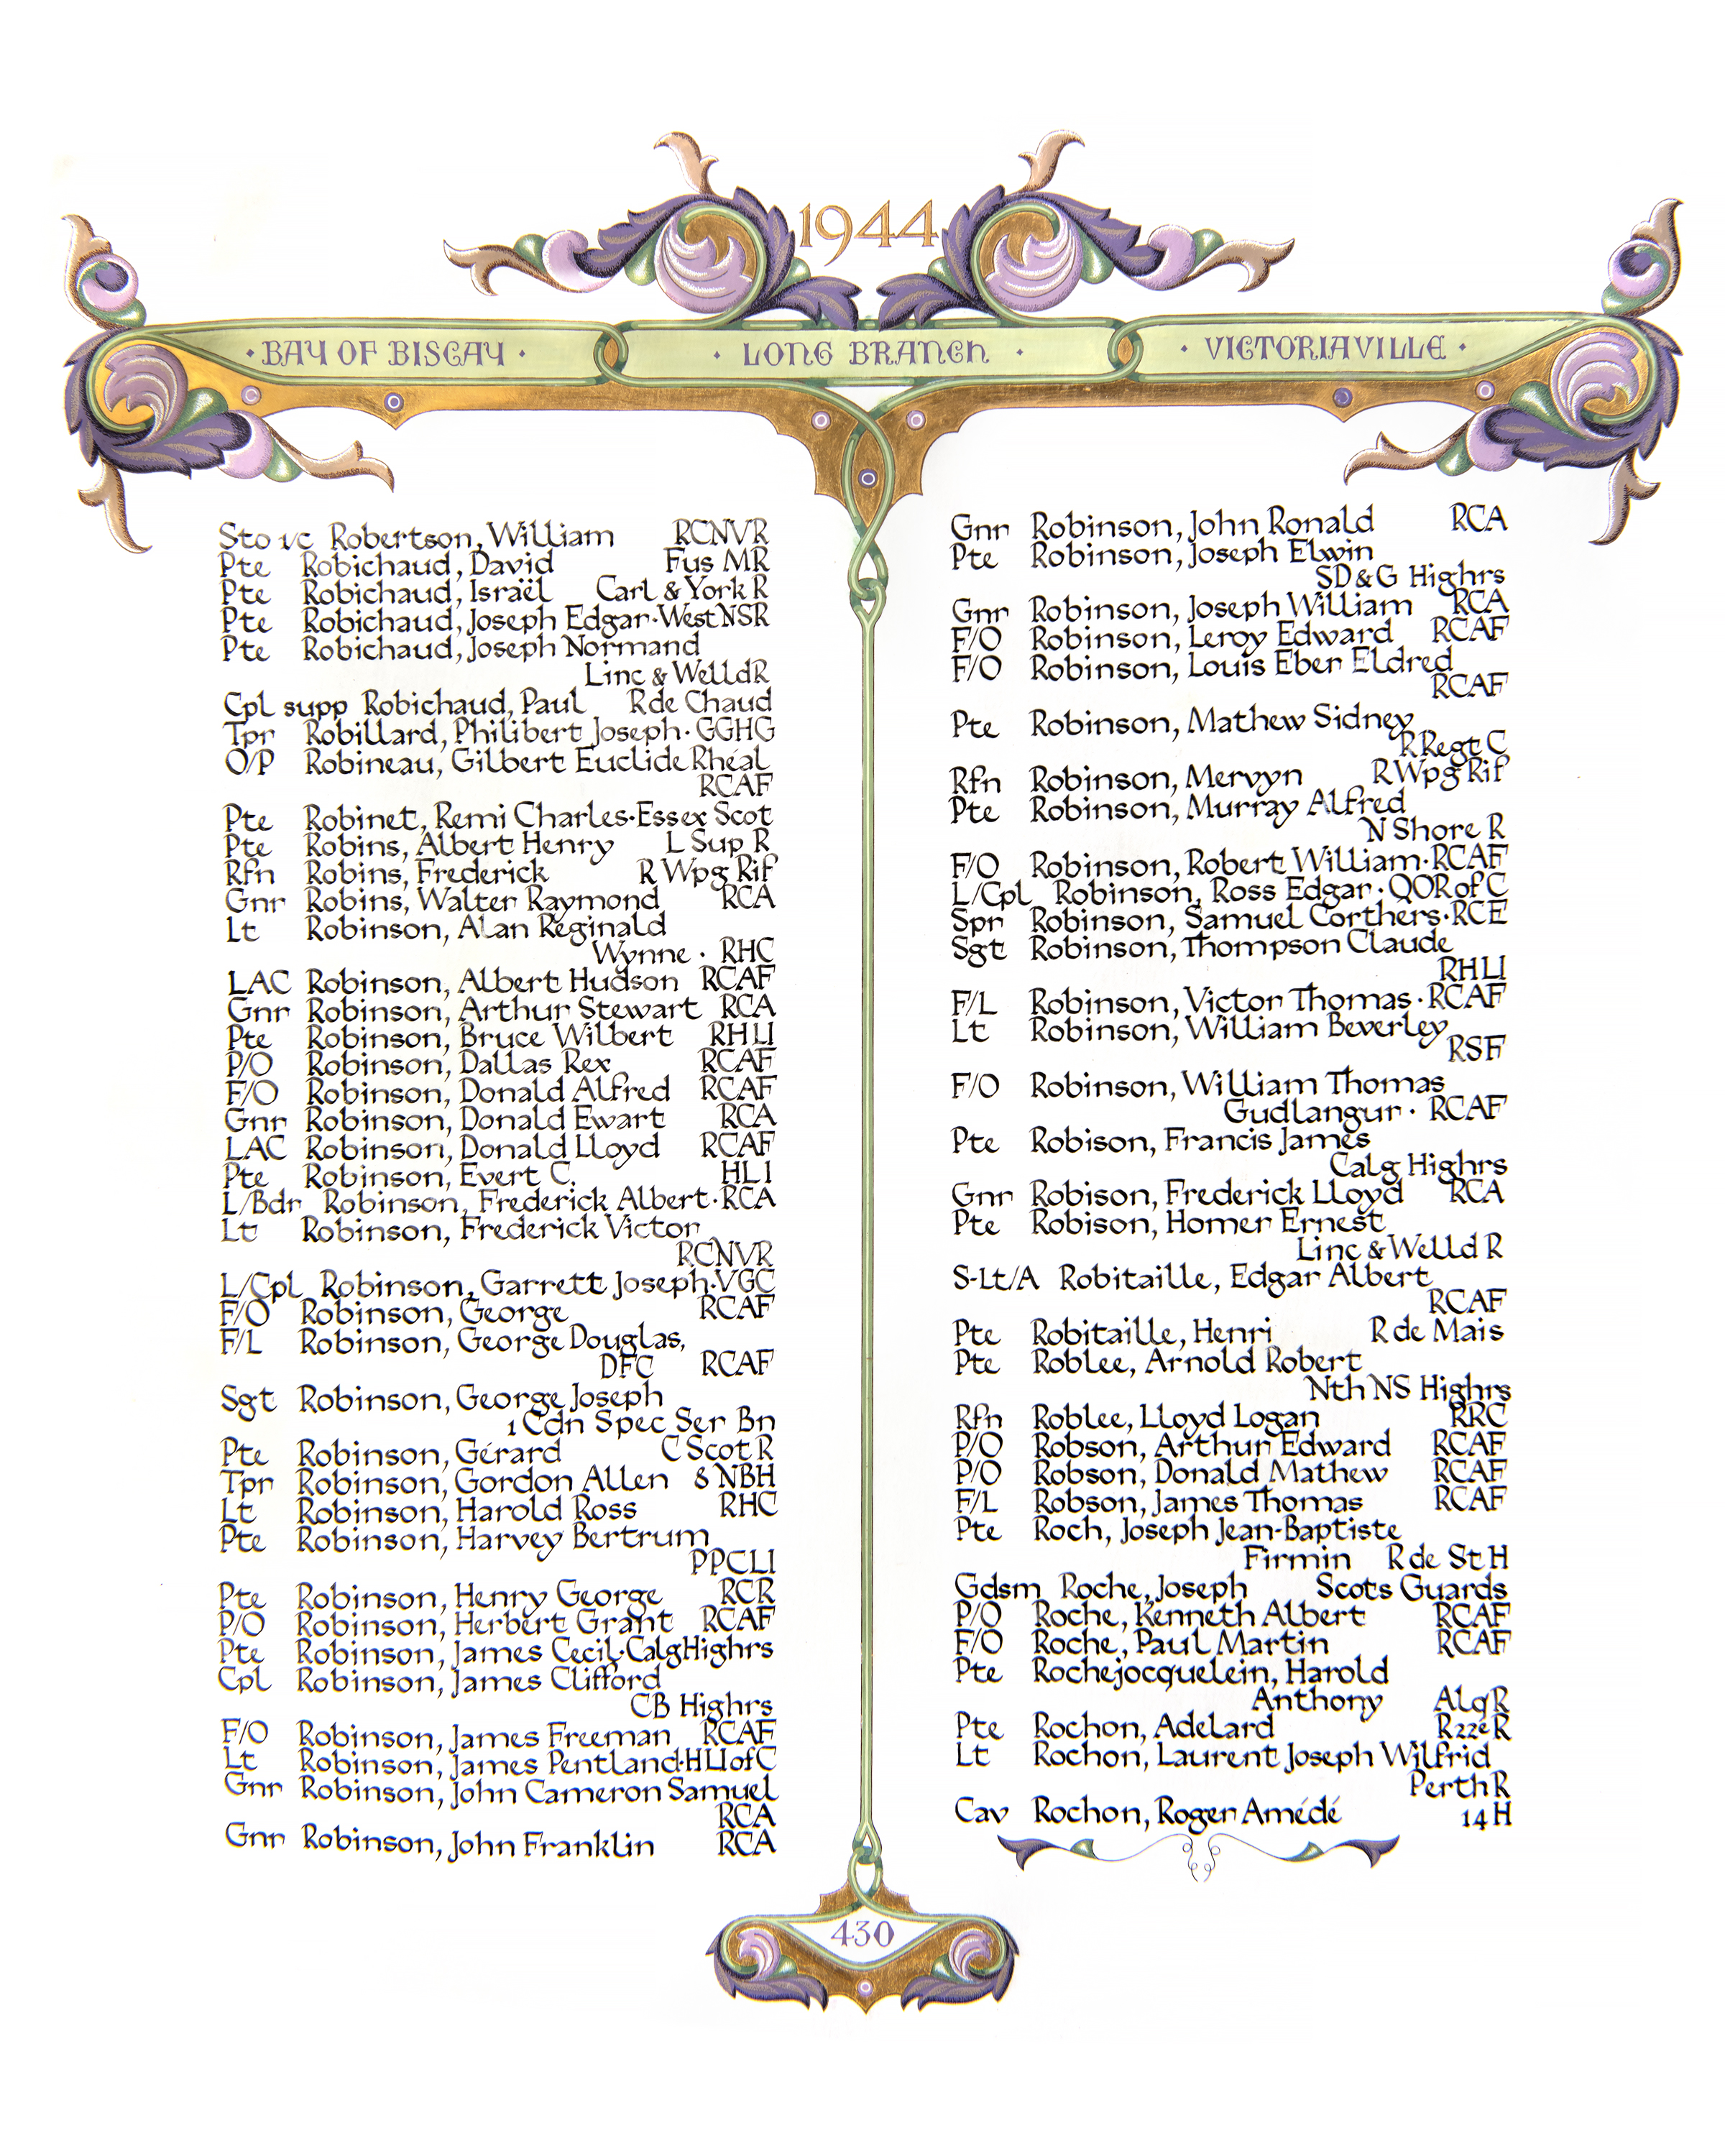 1944
· BAY OF BISCAY ·
· LONG BRANCH ·
· VICTORIAVILLE ·
Sto 1/c Robertson, William RCNVR
Pte Robichaud, David Fus MR
Pte Robichaud, Israël Carl & York R
Pte Robichaud, Joseph Edgar · West NSR
Pte Robichaud, Joseph Normand
Linc & Welld R
Cpl supp Robichaud, Paul R de Chaud
Tpr Robillard, Philibert Joseph · GGHG
O/P Robineau, Gilbert Euclide Rhéal
RCAF
Pte Robinet, Remi Charles · Essex Scot
Pte Robins, Albert Henry L Sup R
Rfn Robins, Frederick R Wpg Rif
Gnr Robins, Walter Raymond RCA
Lt Robinson, Alan Reginald
Wynne · RHC
LAC Robinson, Albert Hudson RCAF
Gnr Robinson, Arthur Stewart RCA
Pte Robinson, Bruce Wilbert RHLI
P/O Robinson, Dallas Rex RCAF
F/O Robinson, Donald Alfred RCAF
Gnr Robinson, Donald Ewart RCA
LAC Robinson, Donald Lloyd RCAF
Pte Robinson, Evert C. HLI
L/Bdr Robinson, Frederick Albert · RCA
Lt Robinson, Frederick Victor
RCNVR
L/Cpl Robinson, Garrett Joseph · VGC
F/O Robinson, George RCAF
F/L Robinson, George Douglas,
DFC RCAF
Sgt Robinson, George Joseph
1 Cdn Spec Ser Bn
Pte Robinson, Gérard C Scot R
Tpr Robinson, Gordon Allen 8 NBH
Lt Robinson, Harold Ross RHC
Pte Robinson, Harvey Bertrum
PPCLI
Pte Robinson, Henry George RCR
P/O Robinson, Herbert Grant RCAF
Pte Robinson, James Cecil · Calg Highrs
Cpl Robinson, James Clifford
CB Highrs
F/O Robinson, James Freeman RCAF
Lt Robinson, James Pentland · HLI of C
Gnr Robinson, John Cameron Samuel
RCA
Gnr Robinson, John Franklin RCA
Gnr Robinson, John Ronald RCA
Pte Robinson, Joseph Elwin
SD & G Highrs
Gnr Robinson, Joseph William RCA
F/O Robinson, Leroy Edward RCAF
F/O Robinson, Louis Eber Eldred
RCAF
Pte Robinson, Mathew Sidney
R Regt C
Rfn Robinson, Mervyn R Wpg Rif
Pte Robinson, Murray Alfred
N Shore R
F/O Robinson, Robert William · RCAF
L/Cpl Robinson, Ross Edgar · QOR of C
Spr Robinson, Samuel Corthers · RCE
Sgt Robinson, Thompson Claude
RHLI
F/L Robinson, Victor Thomas · RCAF
Lt Robinson, William Beverley
RSF
F/O Robinson, William Thomas
Gudlangur · RCAF
Pte Robison, Francis James
Calg Highrs
Gnr Robison, Frederick Lloyd RCA
Pte Robison, Homer Ernest
Linc & Welld R
S-Lt/A Robitaille, Edgar Albert
RCAF
Pte Robitaille, Henri R de Mais
Pte Roblee, Arnold Robert
Nth NS Highrs
Rfn Roblee, Lloyd Logan RRC
P/O Robson, Arthur Edward RCAF
P/O Robson, Donald Mathew RCAF
F/L Robson, James Thomas RCAF
Pte Roch, Joseph Jean-Baptiste
Firmin R de St H
Gdsm Roche, Joseph Scots Guards
P/O Roche, Kenneth Albert RCAF
F/O Roche, Paul Martin RCAF
Pte Rochejocquelein, Harold
Anthony Alq R
Pte Rochon, Adelard R22eR
Lt Rochon, Laurent Joseph Wilfrid
Perth R
Cav Rochon, Roger Amédé 14 H
430